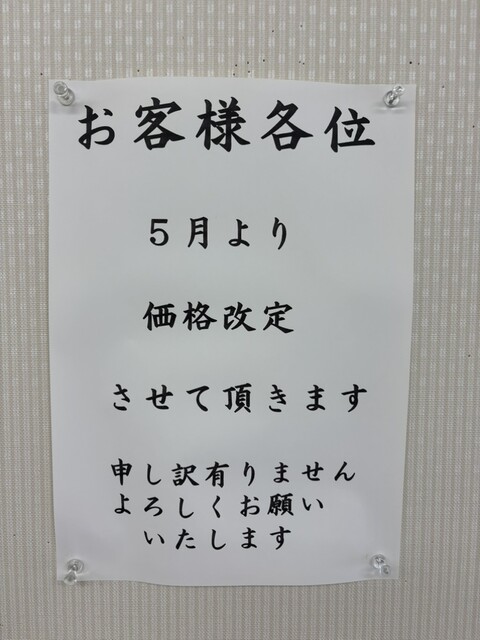 お客様各位
５月より
価格改定
させて頂きます
申し訳有りません
よろしくお願い
いたします